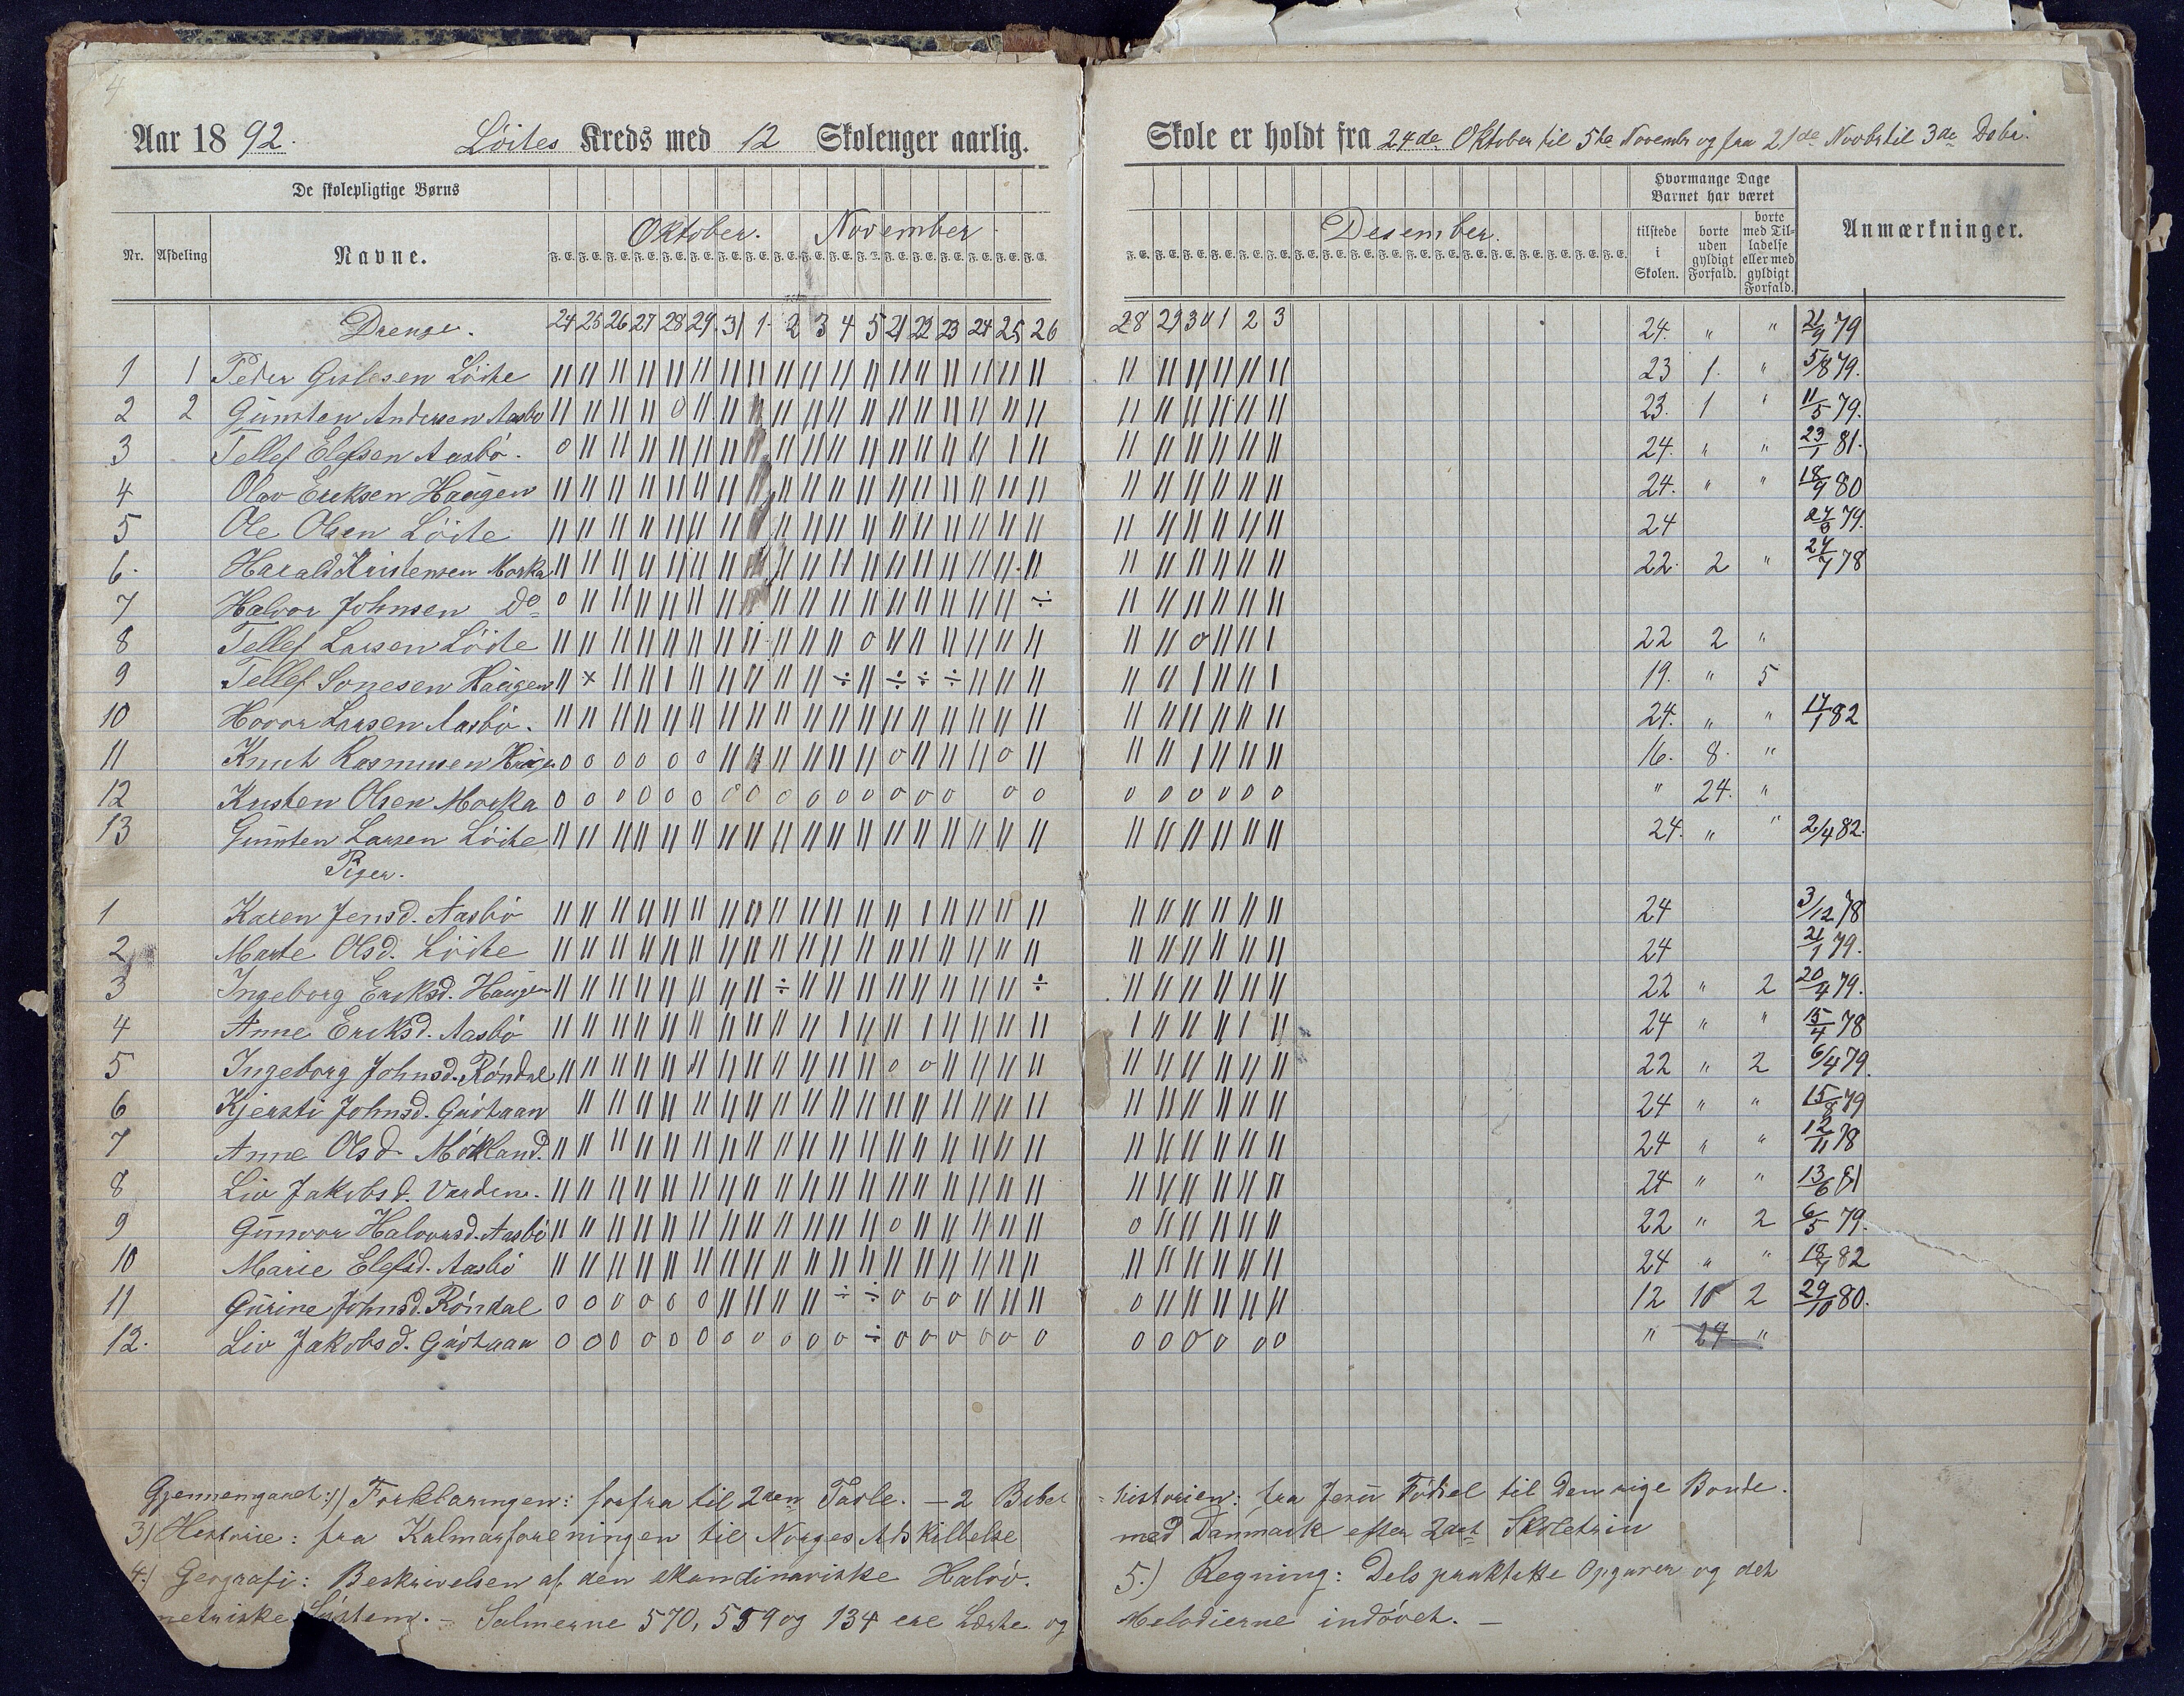 4
Aar 1892. Löites Kreds med 12 Skolenger aarlig.
De skolepligtige Børns
Nr. Afdeling Navne. Oktober. November
F. E. F. E. F. E. F. E. F. E. F. E. F. E. F. E. F. E. F. E. F. E. F. E. F. E. F. E. F. E. F. E. F. E. F. E.
Drenge. 24 25 26 27 28 29 31 1 2 3 4 5 21 22 23 24 25 26
1 1 Peder Gislesen Löite
2 2 Gunsten Andersen Aasbo
3 Tellef Elefsen Aasbö.
4 Olav Eriksen Haugen
5 Ole Olsen Löite
6. Harald Kristensen Morka
7 Halvor Johnsen Do
8 Tellef Larsen Löite
9 Tellef Sonesen Haugen
10 Hovor Larsen Aasbö.
11 Knut Rasmusen Haugen
12 Kristen Olsen Morka
13 Gunsten Larsen Löite
Piger.
1 Karen Jensd. Aasbö
2 Marte Olsd. Löite
3 Ingeborg Eriksd. Haugen
4 Anne Eriksd. Aasbö
5 Ingeborg Johnsd. Röndal
6 Kjersti Johnsd.
7 Anne Olsd. Mökland.
8 Liv Jakobsd. Varden.
9 Gunvor Halvorsd. Aasbö
10 Marie Elefsd. Aasbö
11 Gurine Johnsd. Röndal
12. Liv Jakobsd.
Gjennemgaaet: 1) Forklaringen: forfra til 2den Tavle. – 2 Bibel
3) Historie: fra Kalmarforeningen til Norges Adskillelse
4.) Geografi: Beskrivelsen af den skandinaviske Halvö.
metriske System. – Salmerne 570, 559 og 134 ere Lærte og
Skole er holdt fra 24de Oktober til 5te Novembr og fra 21de Novbr til 3de Debr.
Desember.
F. E. F. E. F. E. F. E. F. E. F. E. F. E. F. E. F. E. F. E. F. E. F. E. F. E. F. E. F. E. F. E. F. E. F. E.
Hvormange Dage Barnet har været
tilstede i Skolen.
borte uden gyldigt Forfald.
borte med Tilladelse eller med gyldigt Forfald.
Anmærkninger.
28 29 30 1 2 3 24. " " 21/9 79
23 1. " 5/8 79.
23. 1 " 11/5 79.
24. " " 23/1 81.
24. " " 18/9 80
24 79.
22. 2 " 78
22 2 "
19. " 5
24. " " 17/1 82
16. 8. "
" 24. "
24. " " 2/4 82.
24 3/12 78
24 21/1 79.
22 " 2 20/4 79.
24 " " 15/4 78
22 " 2 6/4 79.
24 " " 15/8 79
24 " " 12/11 78
24 " " 13/6 81
22 " 2 6/5 79.
24 " " 82
12 10 2 29/10 80.
" 24 "
historien: fra Jesu Födsel til Den rige Bonde.
med Danmark efter 2det Skoletrin
5.) Regning: Dels praktiske Opgaver og det
Melodierne indövet. –